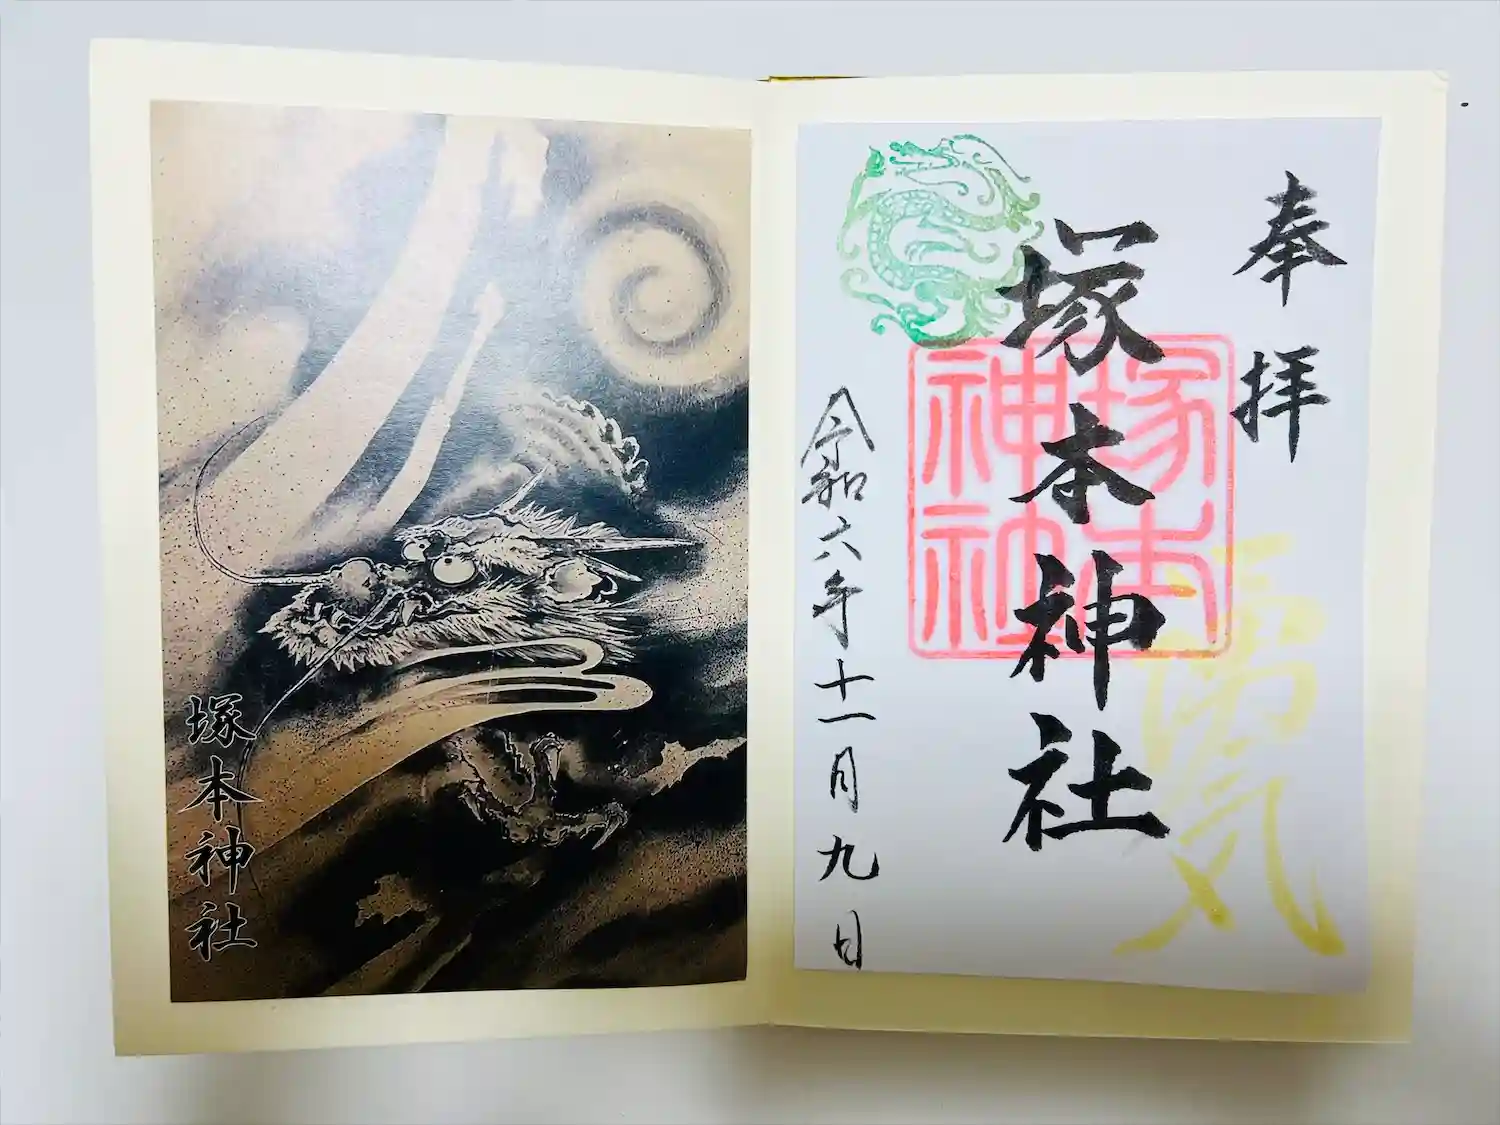 奉拝
塚本神社
塚本
神社
令和六年十一月九日
塚本神社